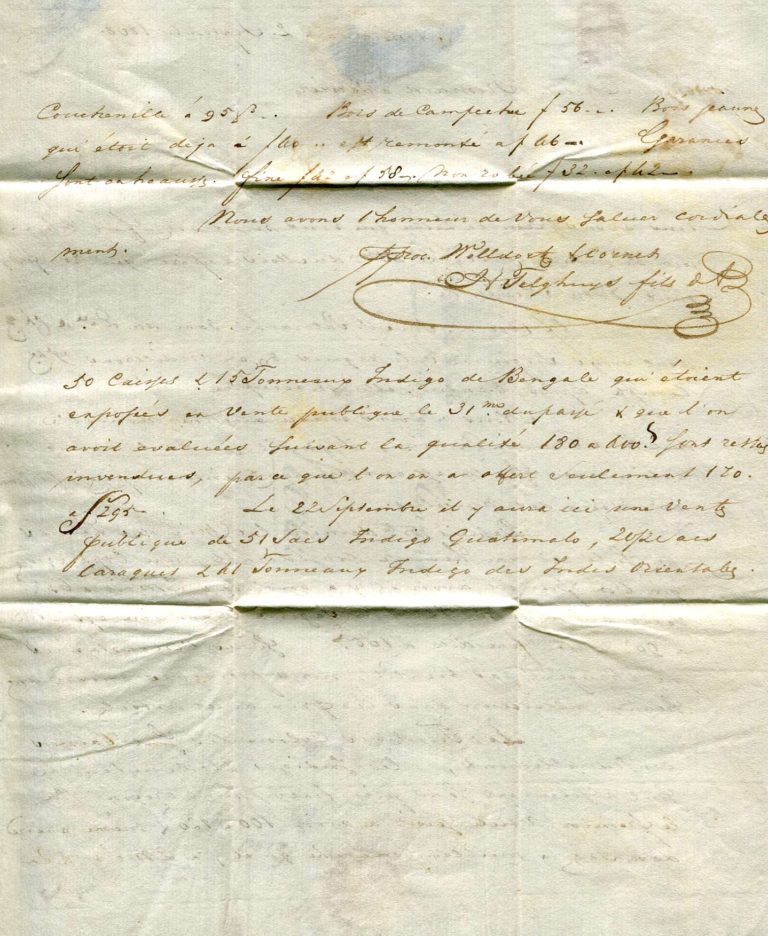 Couchenille á 95 ß. Bois de Campeche f 56 Bois jeaune
qui étoit deja á f 40 est remonté a f 46 Garances
sont en hausse. fine f 42 a f 58. Non robée f 32. a f 42
Nous avons l'honneur de vous saluer cordiale
ment.
Proc. Welldorf & Cornets
J H Telghuys fils &
50 Caisses & 15 Tonneaux Indigo de Bengale qui étoient
exposées en Vente publique le 31 me du passé & que l'on
avoit evaluées suivant la qualité 180 a 400 ß sont restés
invendues, parce que l'on en a offert seulement 170.
a ß 295 Le 22 Septembre il y aura ici une Vente
publique de 51 Sacs Indigo Guatimalo,
Caraques & 41 Tonneaux Indigo des Indes Orientales.